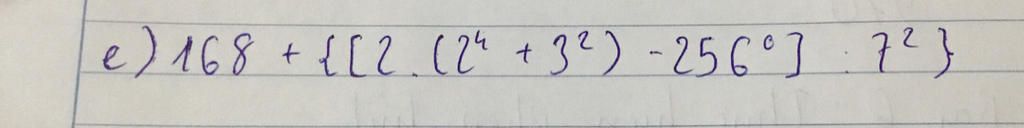 e) 168 + {[2.(2⁴ + 3²) - 256⁰] : 7²}